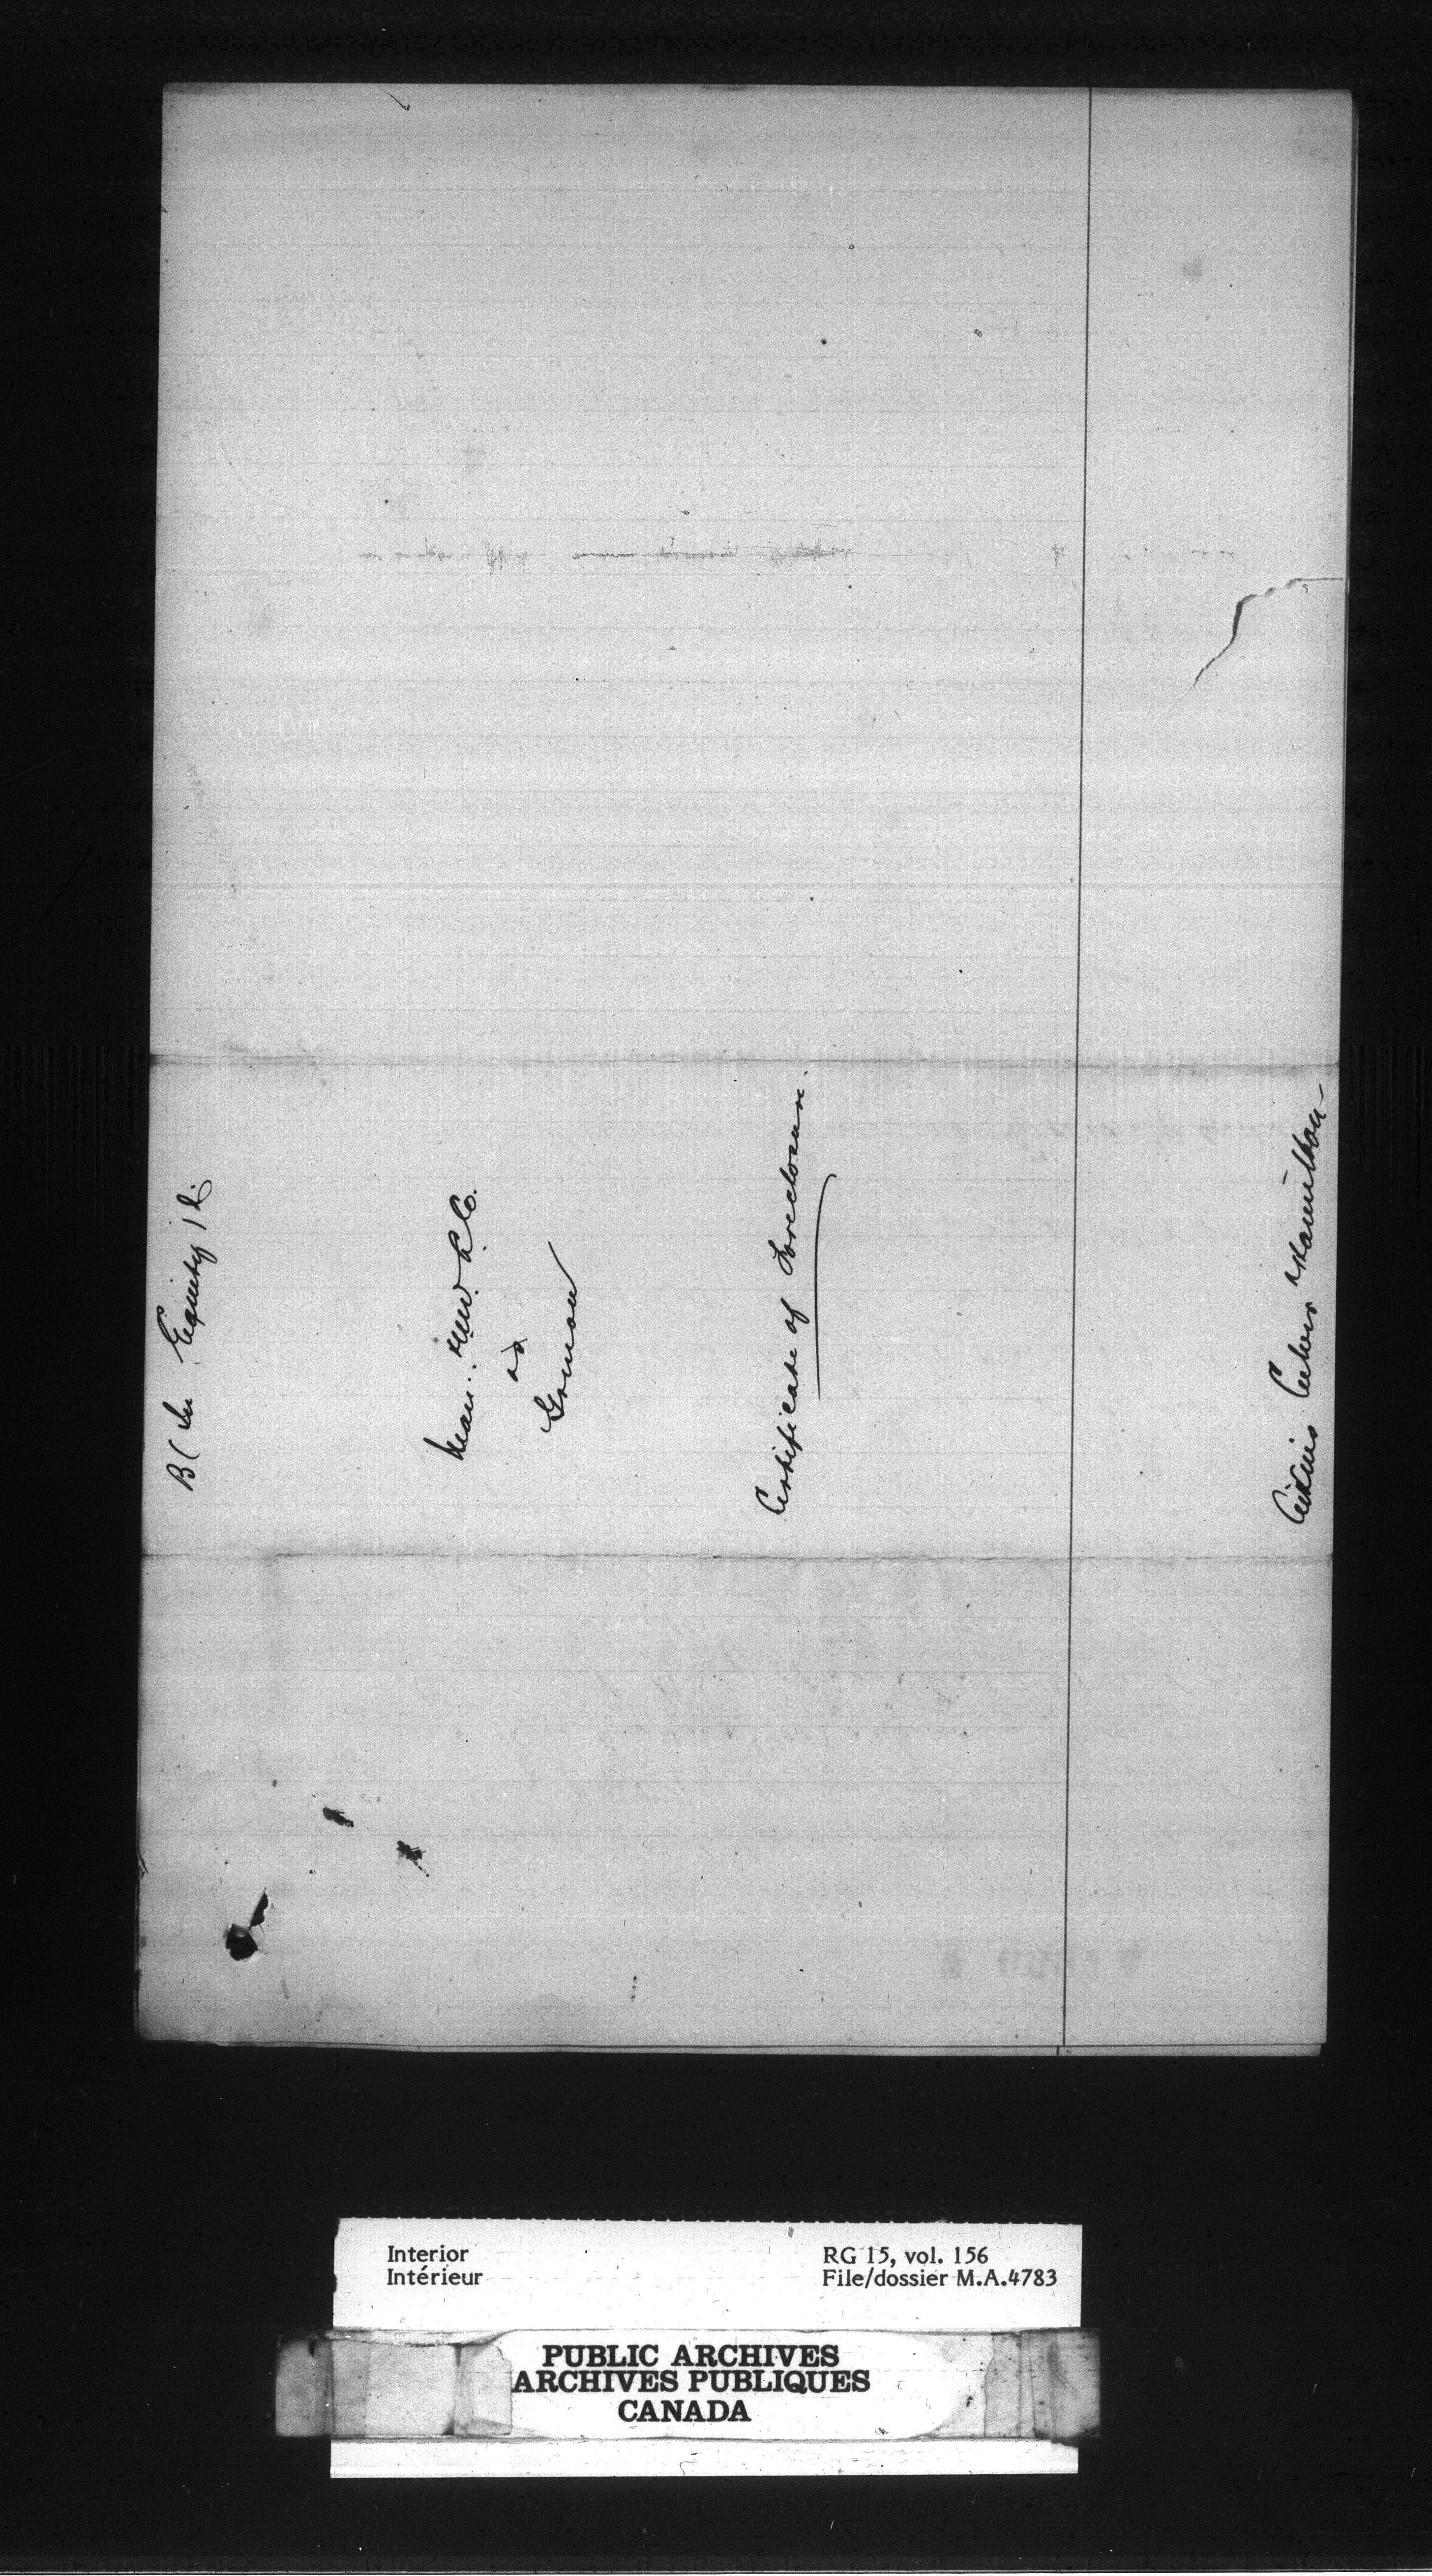 In Equity
Man. & N.W. L. Co.
vs
Gorman
Certificate of Foreclosure.
Aikins Culver & Hamilton
Interior
Intérieur
RG 15, vol. 156
File/dossier M.A.4783
PUBLIC ARCHIVES
ARCHIVES PUBLIQUES
CANADA